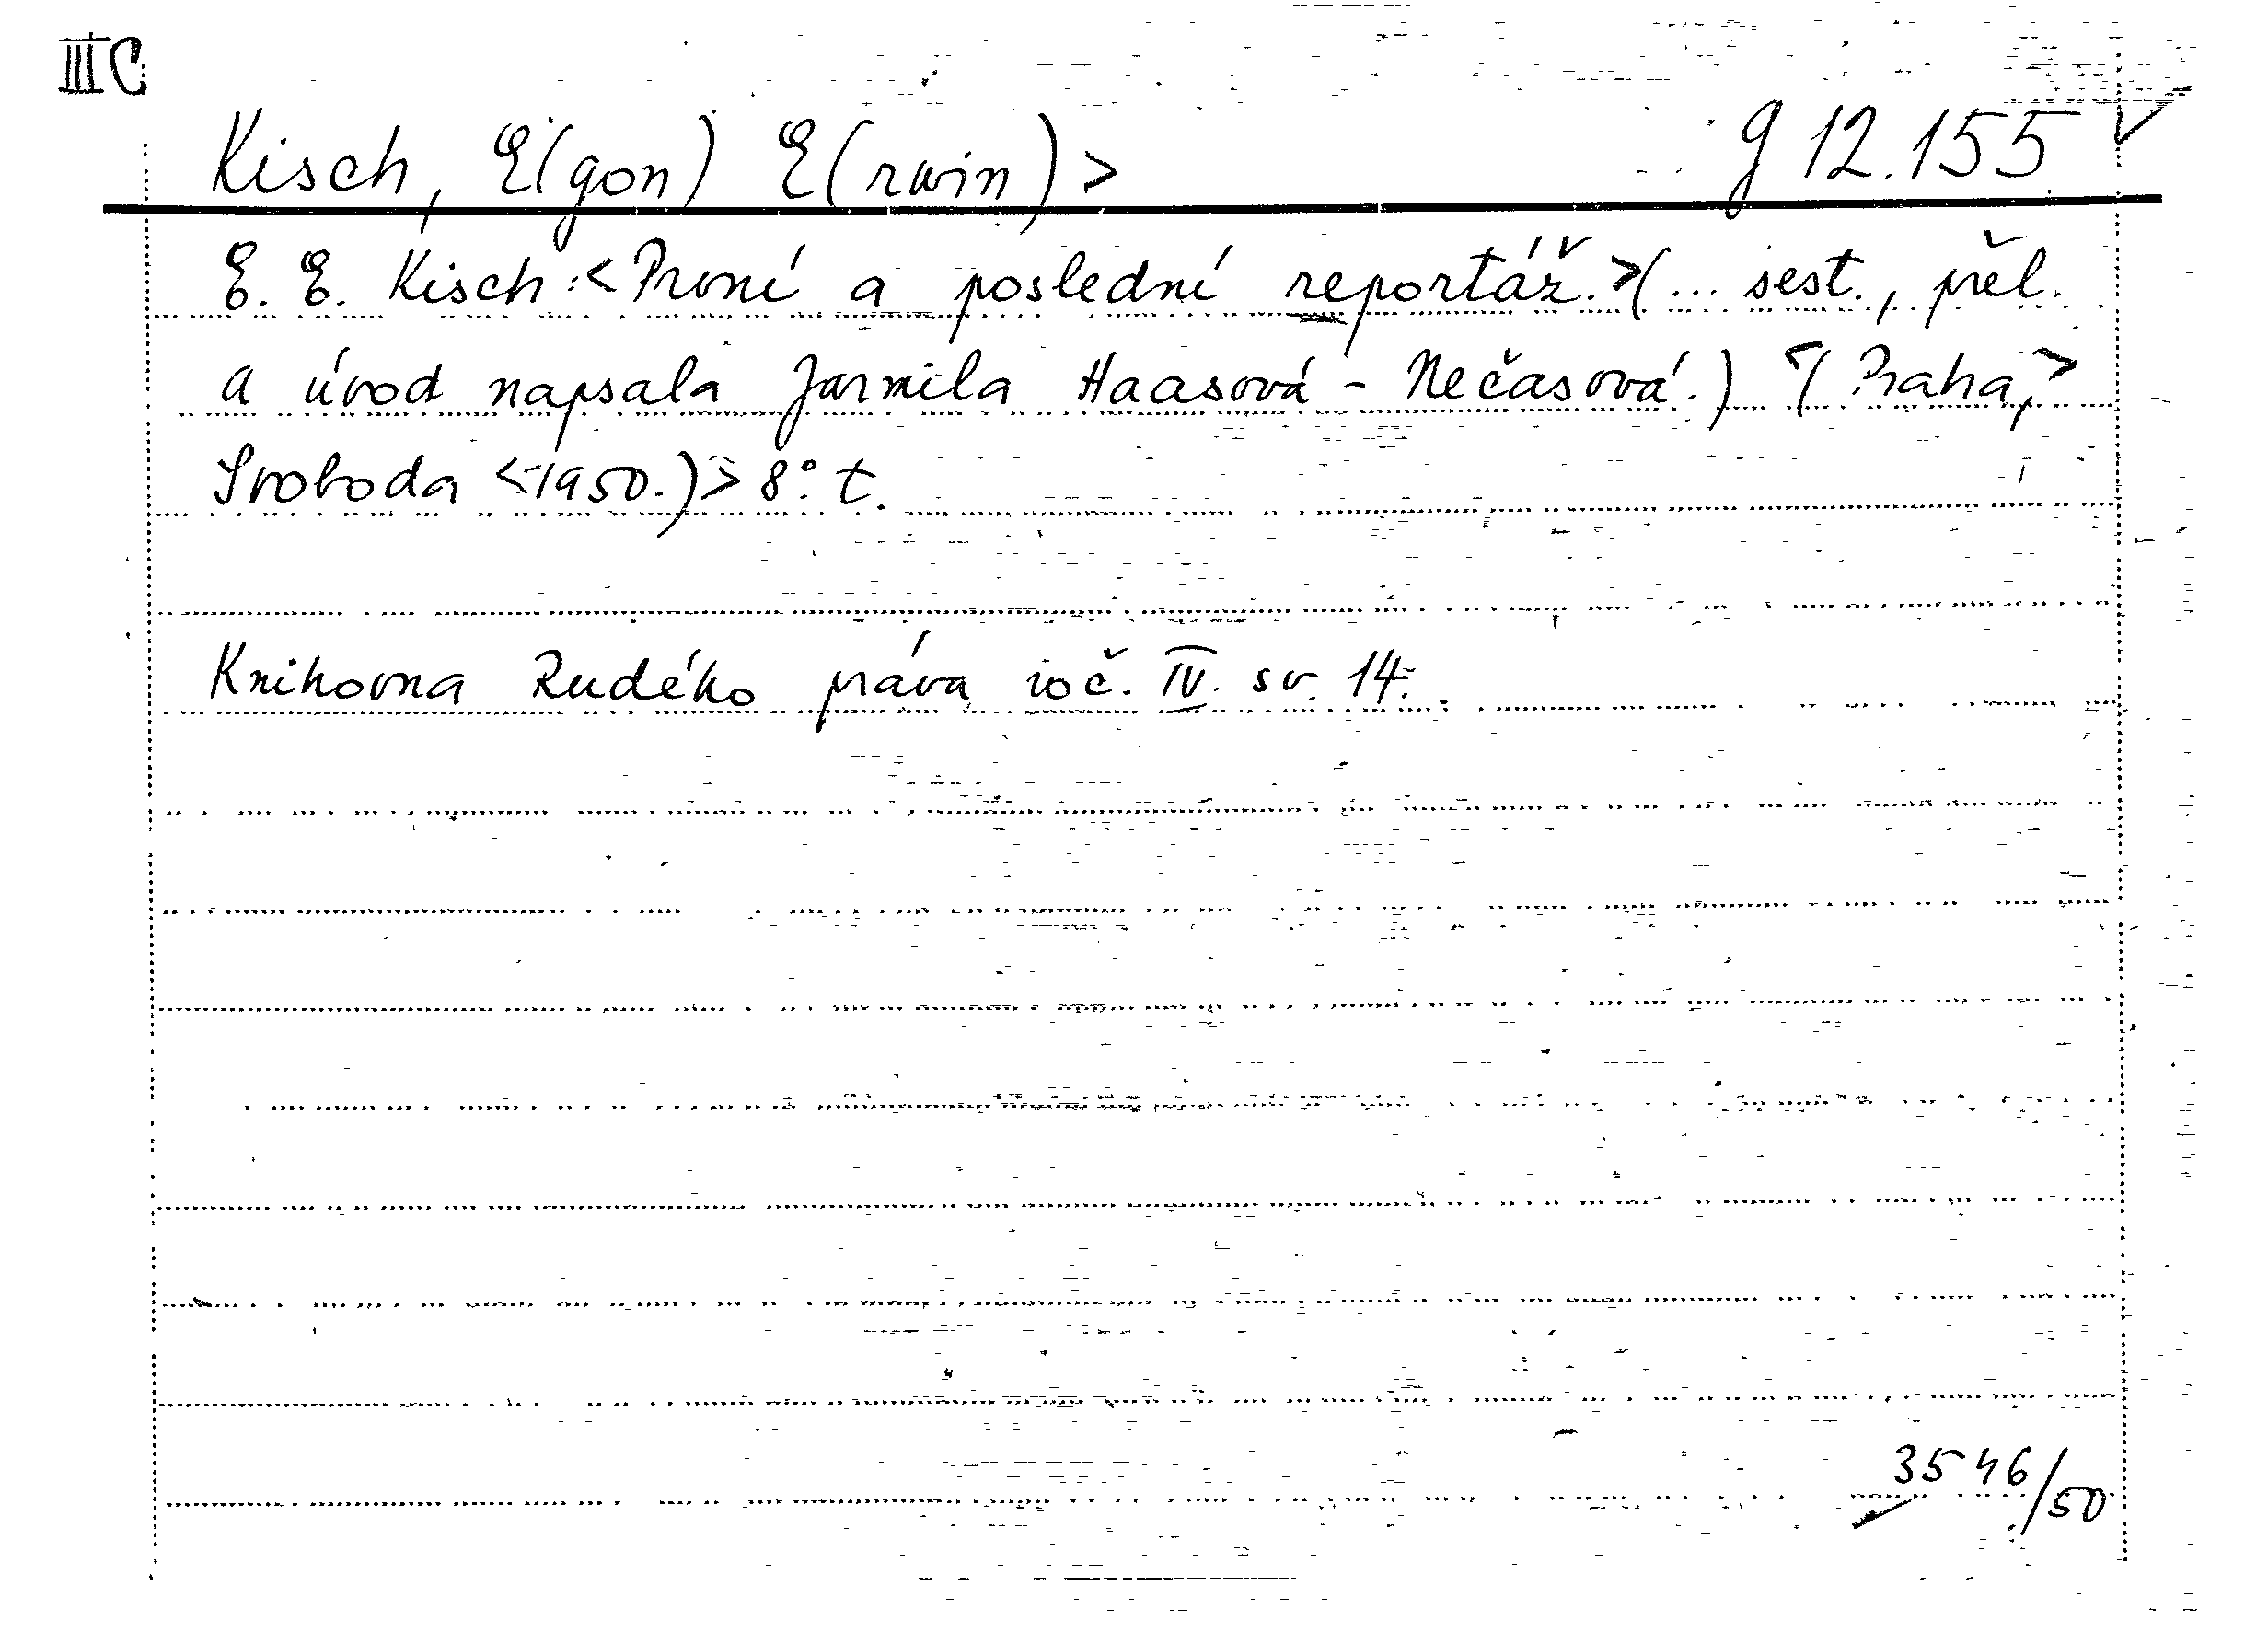 III C
Kisch, E(gon) E(rwin)> g 12.155
E. E. Kisch: <První a poslední reportáž.>(... sest., přel.
a úvod napsala Jarmila Haasová - Nečasová.) <(Praha,>
Svoboda <1950.)> 8° t.
Knihovna Rudého práva roč. IV. sv. 14.
3546/50